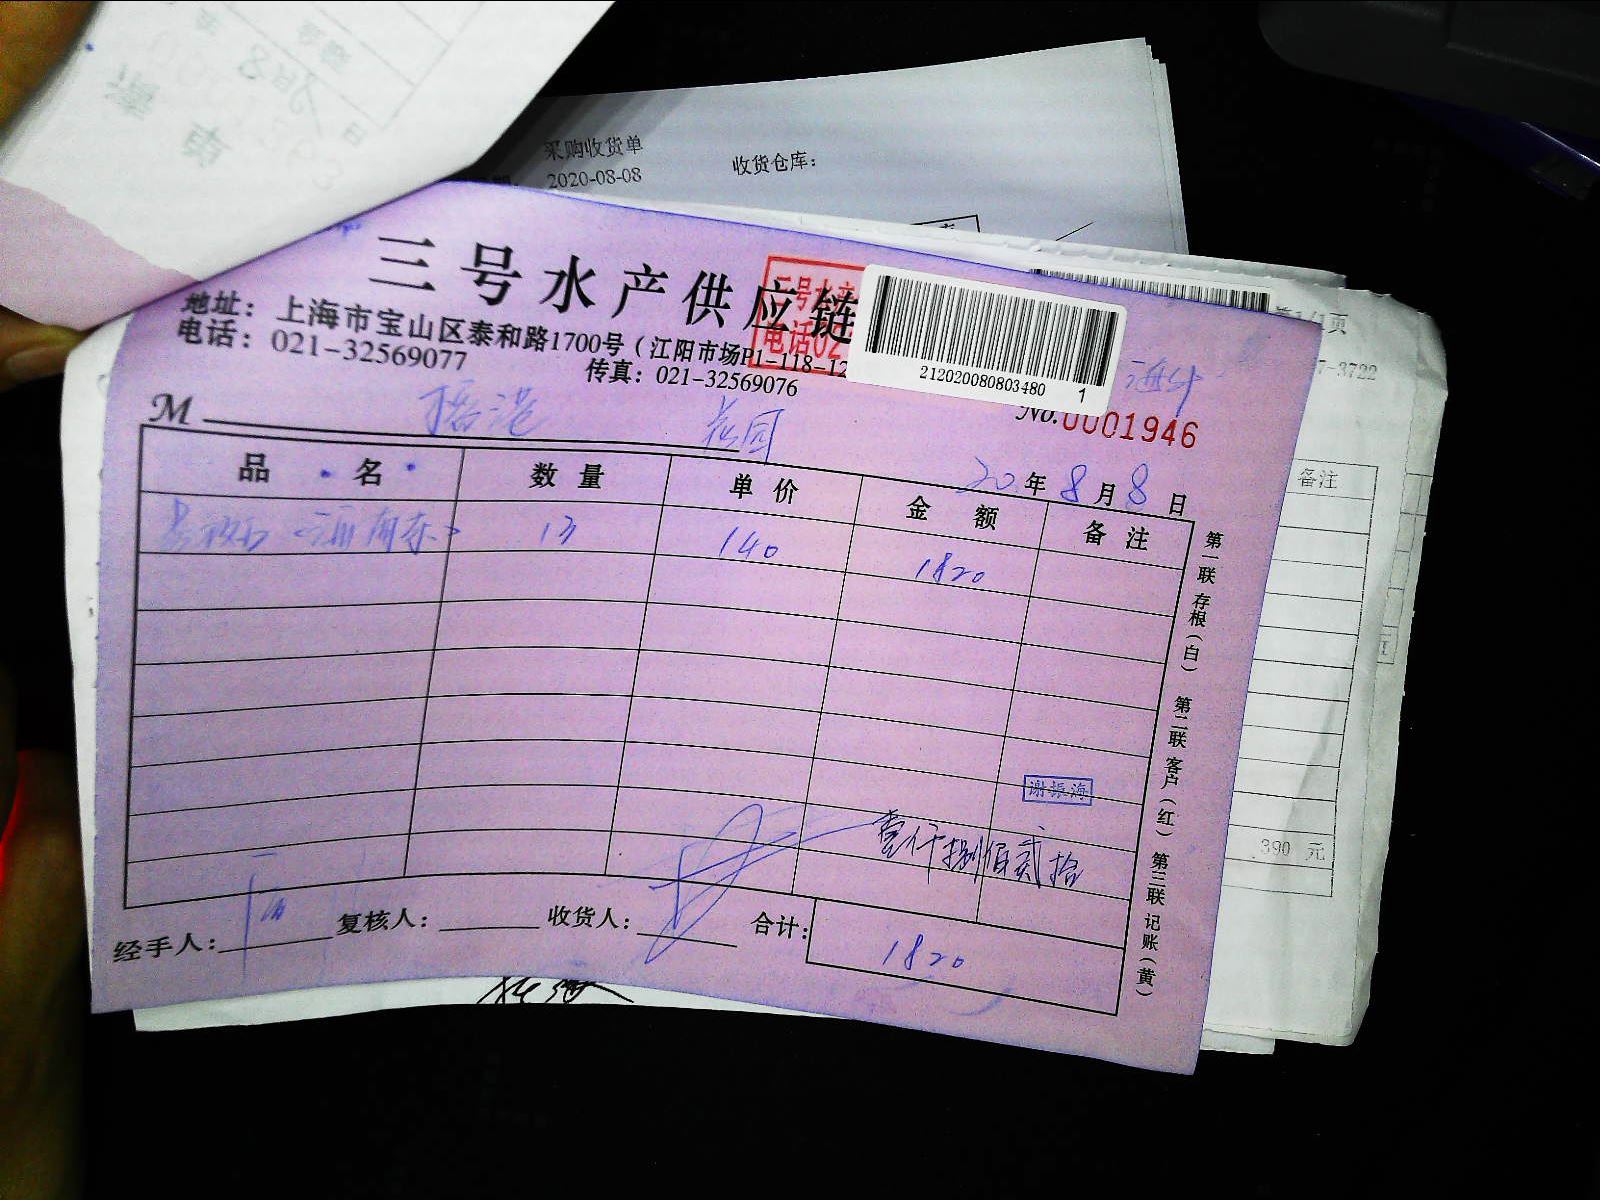 采购收货单
2020-08-08
收货仓库：
三号水产供应链
地址：上海市宝山区泰和路1700号（江阳市场P1-118-12
电话：021-32569077
传真：021-32569076
三号水产
电话02
212020080803480 1
第1/1页
7-3722
M
花园
No.0001946
20年8月8日
品名 数量 单价 金额 备注
13 140 1820
备注
第一联 存根（白） 第二联 客户（红） 第三联 记账（黄）
谢振海
壹仟捌佰贰拾
390 元
经手人： 复核人： 收货人： 合计：1820